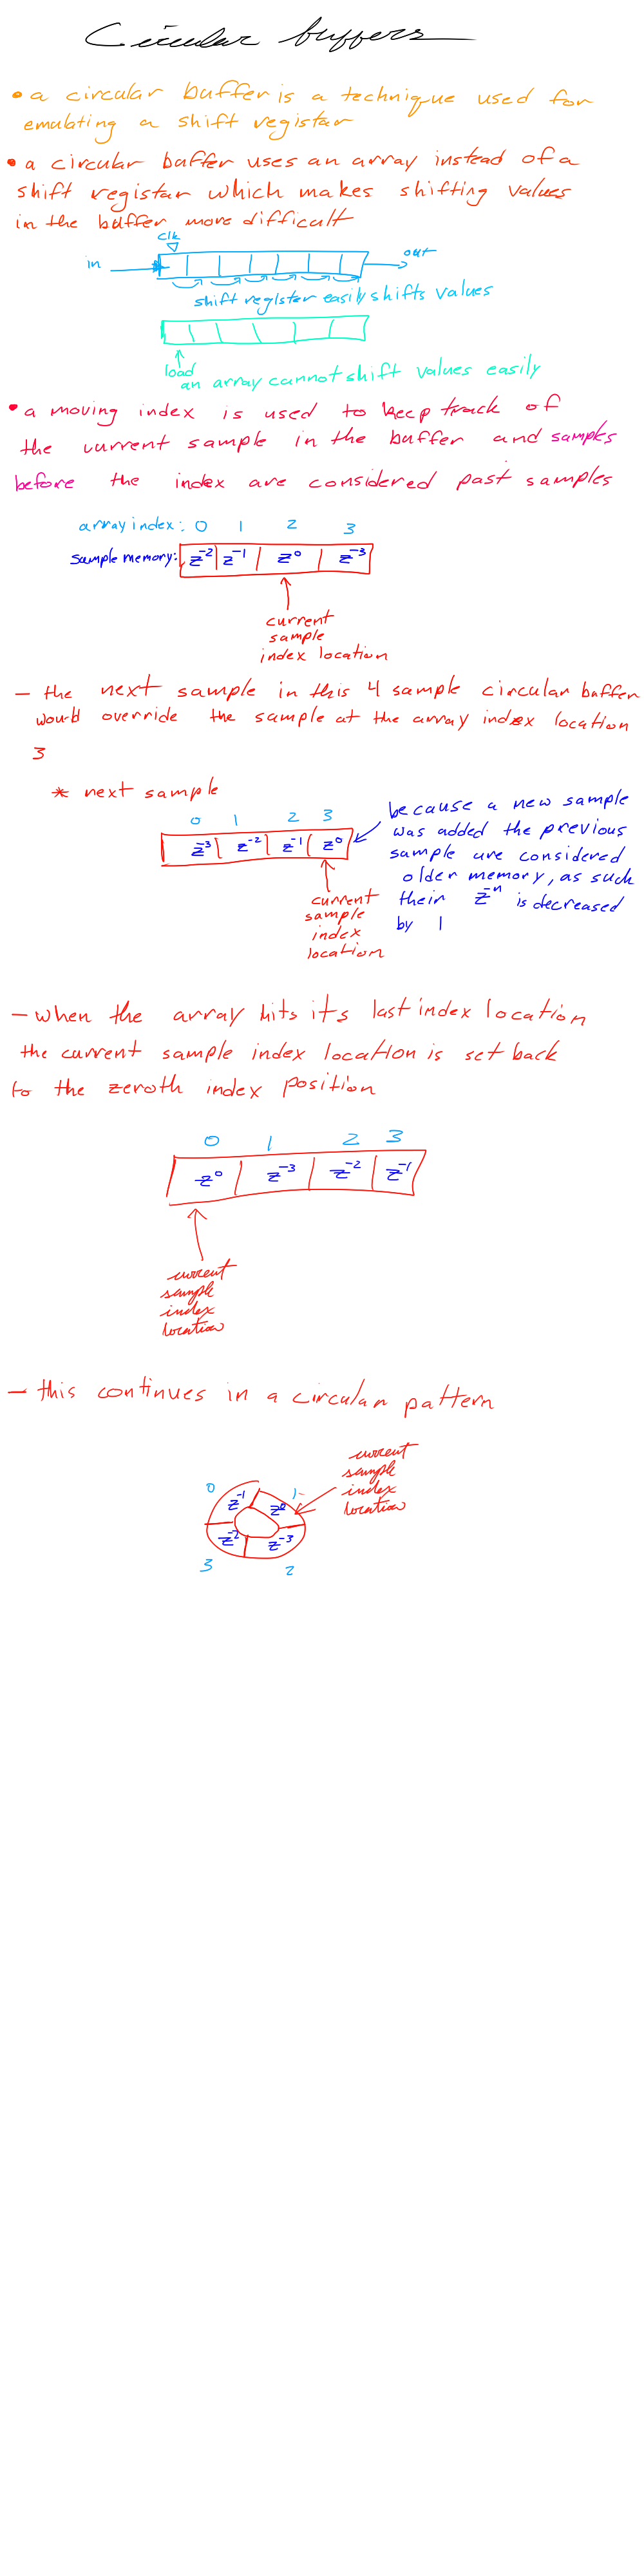 Circular buffers
• a circular buffer is a technique used for
emulating a shift registar
• a circular buffer uses an array instead of a
shift registar which makes shifting values
in the buffer more difficult
clk
in
out
shift register easily shifts values
load
an array cannot shift values easily
• a moving index is used to keep track of
the current sample in the buffer and samples
before the index are considered past samples
array index: 0 1 2 3
sample memory: z⁻² z⁻¹ z⁰ z⁻³
current
sample
index location
- the next sample in this 4 sample circular buffer
would override the sample at the array index location
3
* next sample
0 1 2 3
z⁻³ z⁻² z⁻¹ z⁰
because a new sample
was added the previous
sample are considered
older memory, as such
their z⁻ⁿ is decreased
by 1
current
sample
index
location
- when the array hits its last index location
the current sample index location is set back
to the zeroth index position
0 1 2 3
z⁰ z⁻³ z⁻² z⁻¹
current
sample
index
location
- this continues in a circular pattern
current
sample
index
location
0 1
z⁻¹ z⁰
z⁻² z⁻³
3 2